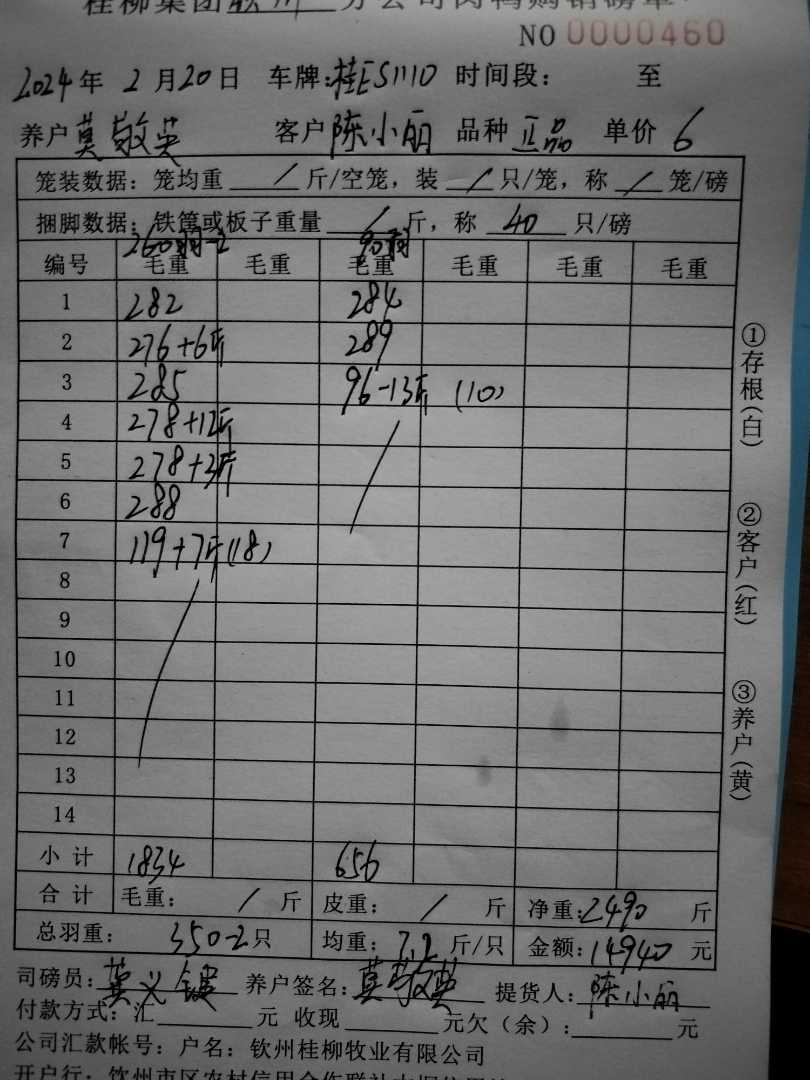 桂柳集团钦州分公司肉鸭购销磅单
NO 0000460
2024年 2月20日 车牌:桂ES1110 时间段: 至
养户 莫敬英 客户 陈小丽 品种 正品 单价 6
笼装数据:笼均重 / 斤/空笼,装 / 只/笼,称 / 笼/磅
捆脚数据:铁篁或板子重量 / 斤,称 40 只/磅
260羽-2 90羽
编号 毛重 毛重 毛重 毛重 毛重 毛重
1 282 284
2 276+6斤 289
3 285 96-13斤 (10)
4 278+12斤
5 278+3斤
6 288
7 119+7斤(18)
8
9
10
11
12
13
14
小计 1834 656
合计 毛重: / 斤 皮重: / 斤 净重:2490 斤
总羽重: 350-2只 均重: 7.2 斤/只 金额:14940 元
司磅员:莫义键 养户签名:莫敬英 提货人:陈小丽
付款方式:汇 元 收现 元欠(余): 元
公司汇款帐号:户名:钦州桂柳牧业有限公司
①存根(白)
②客户(红)
③养户(黄)